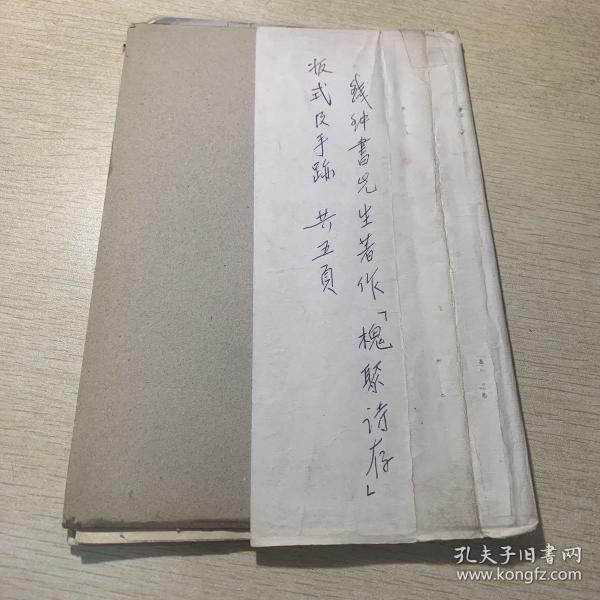 錢钟書先生著作「槐聚诗存」
板式及手跡 共五頁
孔夫子旧书网
www.kongfz.com